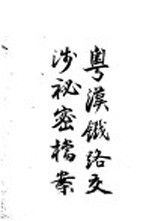 粤漢鐵路交
涉祕密檔案